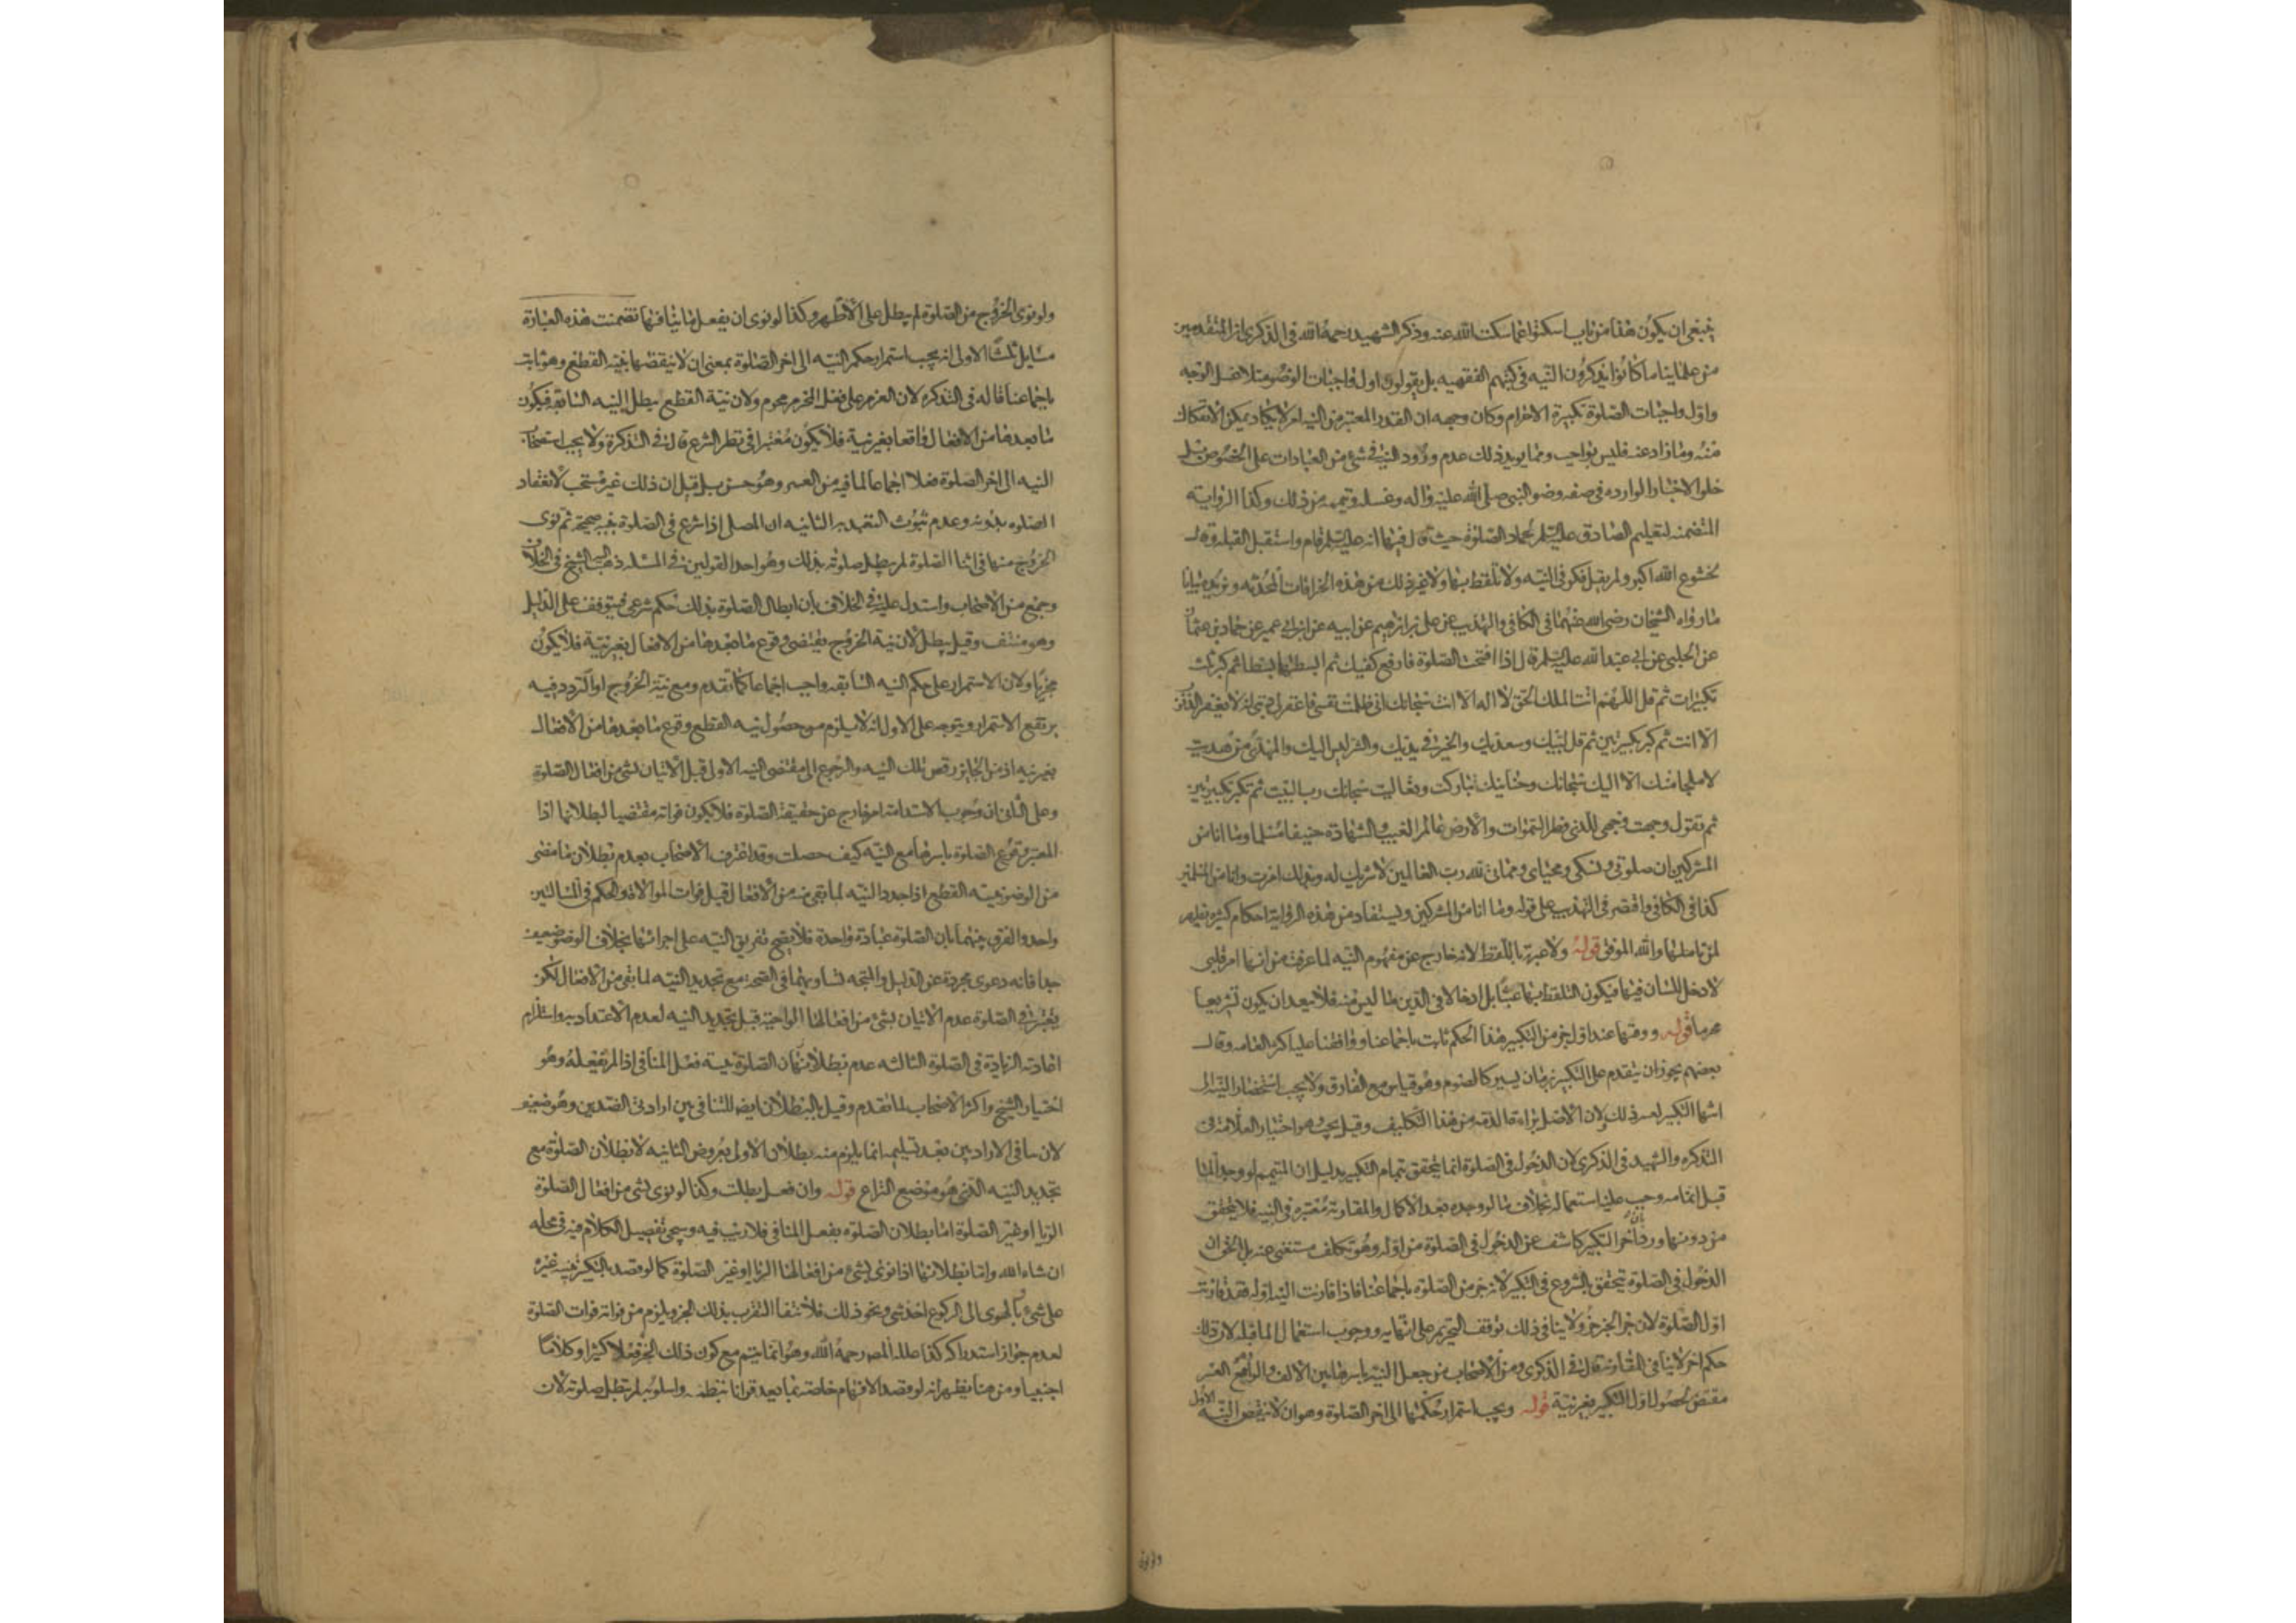 ينبغي ان يكون هذا من باب اسكتوا عما سكت الله عنه وذكر الشهيد رحمه الله في الذكرى ان المتقدمين
من علمائنا ما كانوا يذكرون النيه في كتبهم الفقهيه بل يقولون اول واجبات الوضو مثلا غسل الوجه
واول واجبات الصلوة تكبيرة الاحرام وكان وجهه ان القدر المعتبر من النيه امر لا يكاد يمكن الانفكاك
عنه وما زاد عنه فليس بواجب ومما يويد ذلك عدم ورود النيه في شئ من العبادات على الخصوص بل
خلو الاخبار الوارده في صفه وضو النبي صلى الله عليه واله وغسله وتيممه من ذلك وكذا الرواية
المتضمنه لتعليم الصادق عليه السلم لحماد الصلوة حيث قال فيها انه عليه السلم قام واستقبل القبله وقال
بخشوع الله اكبر ولم يقل فكر في النيه ولا تلفظ بها ولا غير ذلك من هذه الخرافات المحدثه ويزيده بيانا
ما رواه الشيخان رضي الله عنهما في الكافي والتهذيب عن علي بن ابراهيم عن ابيه عن ابن ابي عمير عن حماد بن عثمان
عن الحلبي عن ابي عبد الله عليه السلم قال اذا افتتحت الصلوة فارفع كفيك ثم ابسطهما بسطا ثم كبر ثلث
تكبيرات ثم قل اللهم انت الملك الحق لا اله الا انت سبحانك اني ظلمت نفسي فاغفر لي ذنبي انه لا يغفر الذنوب
الا انت ثم كبر تكبيرتين ثم قل لبيك وسعديك والخير في يديك والشر ليس اليك والمهدي من هديت
لا ملجا منك الا اليك سبحانك وحنانيك تباركت وتعاليت سبحانك رب البيت ثم تكبر تكبيرتين
ثم تقول وجهت وجهي للذي فطر السموات والارض عالم الغيب والشهادة حنيفا مسلما وما انا من
المشركين ان صلوتي ونسكي ومحياي ومماتي لله رب العالمين لا شريك له وبذلك امرت وانا من المسلمين
كذا في الكافي واقتصر في التهذيب على قوله وما انا من المشركين ويستفاد من هذه الرواية احكام كثيره تظهر
لمن تاملها والله الموفق قوله ولا عبرة باللفظ لانه خارج عن مفهوم النيه لما عرفت من انها امر قلبي
لا دخل للسان فيها فيكون التلفظ بها عبثا بل ادخالا في الدين ما ليس منه فلا يبعد ان يكون تشريعا
محرما قوله ووقتها عند اول جزء من التكبير هذا الحكم ثابت باجماعنا ووافقنا عليه اكثر العامه وقال
بعضهم يجوز ان يتقدم على التكبير بزمان يسير كالصوم وهو قياس مع الفارق ولا يجب استحضار النيه الى
انتها التكبير لعسر ذلك ولان الاصل براءة الذمه من هذا التكليف وقيل يجب وهو اختيار العلامه في
التذكره والشهيد في الذكرى لان الدخول في الصلوة انما يتحقق بتمام التكبير بدليل ان المتيمم لو وجد الما
قبل اتمامه وجب عليه استعماله بخلاف ما لو وجده بعد الاكمال والمقارنة معتبره في النيه فلا يتحقق
من دونها ورد بان اخر التكبير كاشف عن الدخول في الصلوة من اوله وهو تكلف مستغنى عنه بل الحق ان
الدخول في الصلوة يتحقق بالشروع في التكبير لانه جزء من الصلوة باجماعنا فاذا قارنت النيه اوله فقد قارنت
اول الصلوة لان جزء الجزء جزء ولا ينافي ذلك توقف التحريم على انتهايه ووجوب استعمال الما قبله لان ذلك
حكم اخر لا ينافي المقارنة قال في الذكرى ومن الاصحاب من جعل النيه باسرها بين الالف والراء وهو مع العسر
مقتض لحصول اول التكبير بغير نية قوله ويجب استمرار حكمها الى اخر الصلوة وهو ان لا ينقض النيه الاولى
ولو نوى الخروج من الصلوة لم يبطل على الاظهر وكذا لو نوى ان يفعل ما ينافيها تضمنت هذه العبارة
مسايل ثلثا الاولى انه يجب استمرار حكم النيه الى اخر الصلوة بمعنى ان لا ينقضها بنية القطع وهو ثابت
باجماعنا قاله في التذكره لان العزم على فعل المحرم محرم ولان نية القطع يبطل النيه السابقه فيكون
ما بعدها من الافعال واقعا بغير نية فلا يكون معتبرا في نظر الشرع قال في التذكرة ولا يجب استصحاب
النيه الى اخر الصلوة فعلا اجماعا لما فيه من العسر وهو حسن بل قيل ان ذلك غير مستحب لانعقاد
الصلوه بدونه وعدم ثبوت التعبد به الثانيه ان المصلي اذا شرع في الصلوة بنيه صحيحة ثم نوى
الخروج منها في اثنا الصلوة لم يبطل صلوته بذلك وهو احد القولين في المسئله ذهب اليه الشيخ في الخلاف
وجمع من الاصحاب واستدل عليه في الخلاف بان ابطال الصلوة بذلك حكم شرعي فيتوقف على الدليل
وهو منتف وقيل يبطل لان نية الخروج يقتضي وقوع ما بعدها من الافعال بغير نية فلا يكون
مجزيا ولان الاستمرار على حكم النيه السابقه واجب اجماعا كما تقدم ومع نية الخروج او التردد فيه
يرتفع الاستمرار ويتوجه على الاول انه لا يلزم من حصول نيه القطع وقوع ما بعدها من الافعال
بغير نيه اذ من الجايز رفض تلك النيه والرجوع الى مقتضى النيه الاولى قبل الاتيان بشئ من افعال الصلوة
وعلى الثاني ان وجوب الاستدامة امر خارج عن حقيقة الصلوة فلا يكون فواته مقتضيا لبطلانها اذا
المعتبر وقوع الصلوة باسرها مع النيه كيف حصلت وقد اعترف الاصحاب بعدم بطلان ما مضى
من الوضو بنيه القطع اذا جدد النيه لما بقي منه من الافعال قبل فوات الموالاة والحكم في المسالتين
واحد والفرق بينهما بان الصلوة عبادة واحدة فلا يصح تفريق النيه على اجزائها بخلاف الوضو ضعيف
جدا فانه دعوى مجردة عن الدليل والمتجه تساويهما في الصحة مع تجديد النيه لما بقي من الافعال لكن
يعتبر في الصلوة عدم الاتيان بشئ من افعالها الواجبة قبل تجديد النيه لعدم الاعتداد به واستلزام
اعادته الزيادة في الصلوة الثالثه عدم بطلان الصلوة بنية فعل المنافي اذا لم يفعله وهو
اختيار الشيخ واكثر الاصحاب لما تقدم وقيل بالبطلان ايضا للتنافي بين ارادتي الضدين وهو ضعيف
لان تنافي الارادتين بعد تسليمه انما يلزم منه بطلان الاولى بعروض الثانيه لا بطلان الصلوة مع
تجديد النيه الذي هو موضع النزاع قوله وان فعل بطلت وكذا لو نوى بشئ من افعال الصلوة
الريا او غير الصلوة اما بطلان الصلوة بفعل المنافي فلا ريب فيه وسيجئ تفصيل الكلام فيه في محله
ان شاء الله واما بطلانها اذا نوى بشئ من افعالها الريا او غير الصلوة كما لو قصد بالتكبير تنبيه غيره
على شئ او بالهوي الى الركوع اخذ شئ ونحو ذلك فلانتفا التقرب بذلك الجزء ويلزم من فواته فوات الصلوة
لعدم جواز استدراكه كذا علله المص رحمه الله وهو انما يتم مع كون ذلك الجزء فعلا كثيرا او كلاما
اجنبيا ومن هنا يظهر انه لو قصد الافهام خاصة بما يعد قرانا بنظمه واسلوبه لم تبطل صلوته لان